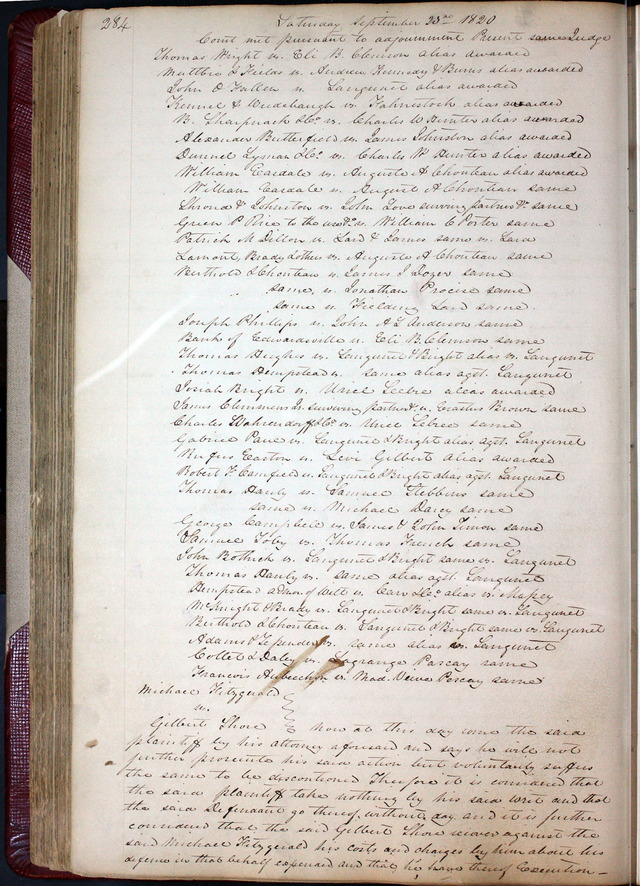 284
Saturday September 23rd 1820
Court met pursuant to adjournment Present same Judge
Thomas Wright vs. Eli B. Clemson alias awarded
Matthew J Fields vs. Andrew Kennedy & Burns alias awarded
John O Fallon vs. Langunet alias awarded
Kennel & Undebaugh vs. Fahnistock alias awarded
B. Sharpnack &Co. vs. Charles W Hunter alias awarded
Alexander Butterfield vs. James Johnston alias awarded
Dannel Lyman &Co. vs. Charles W Hunter alias awarded
William Easdale vs. Auguste A Chouteau alias awarded
William Easdale vs. August A Chouteau same
Shrond & Johnston vs. John Love surviving partner &c. same
Green P Rice to the use &c. vs. William C Porter same
Patrick M Dillon vs. Lard & James same vs. Lard
Lamont, Brady & others vs. Auguste A Chouteau same
Berthold & Chouteau vs. James J Dozer same
same vs. Jonathan Procise same
same vs. Fielding Lard same
Joseph Phillips vs. John A L Anderson same
Bank of Edwardsville vs. Eli B. Clemson same
Thomas Hughes vs. Langunet & Bright alias vs. Langunet
Thomas Hempstead vs. same alias agst. Langunet
Josiah Bright vs. Uriel Seebre alias awarded
James Clemmens Jr. surviving partner &c. vs. Erastus Brown same
Charles Wahrendorff &Co. vs. Uriel Sebree same
Gabriel Paul vs. Langunet & Bright alias agst. Langunet
Rufus Easton vs. Levi Gilbert alias awarded
Robert F Camfield vs. Langunet & Bright alias agst. Langunet
Thomas Hanly vs. Samuel Stebbins same
same vs. Michael Darcy same
George Campbell vs. James & John Timon same
Samuel Toby vs. Thomas French same
John Bothick vs. Langunet & Bright same vs. Langunet
Thomas Hanly vs. same alias agst. Langunet
Hempstead admr. of Wilt vs. Carr &Co. alias vs.
McKnight & Brady vs. Langunet & Bright same vs. Langunet
Berthold & Chouteau vs. Langunet & Bright same vs. Langunet
Adams vs. same alias vs. Langunet
Collet & Daley vs. Lagrange Pascay same
Francois Aubuchon vs. Mad. Veuve Pescay same
Michael Fitzgerald
vs.
Gilbert Shore now at this day come the said
plaintiff by his attorney aforesaid and says he will not
further prosecute his said action but voluntarily suffers
the same to be discontioned Therefore it is considered that
the said plaintiff take nothing by his said writ and that
the said Defendant go thereof without day and it is further
considered that the said Gilbert Shore recover against the
said Michael Fitzgerald his costs and charges by him about his
defense in that behalf expended and that he have thereof Execution-